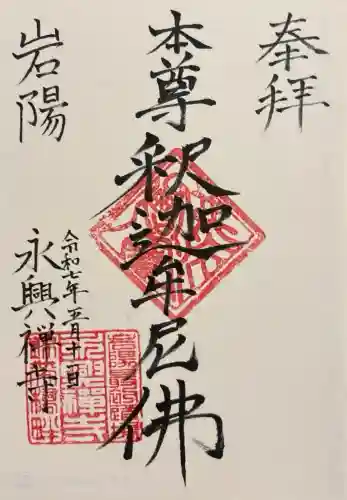 奉拝
本尊 釈迦牟尼佛
岩陽
令和七年五月十一日
永興禅寺